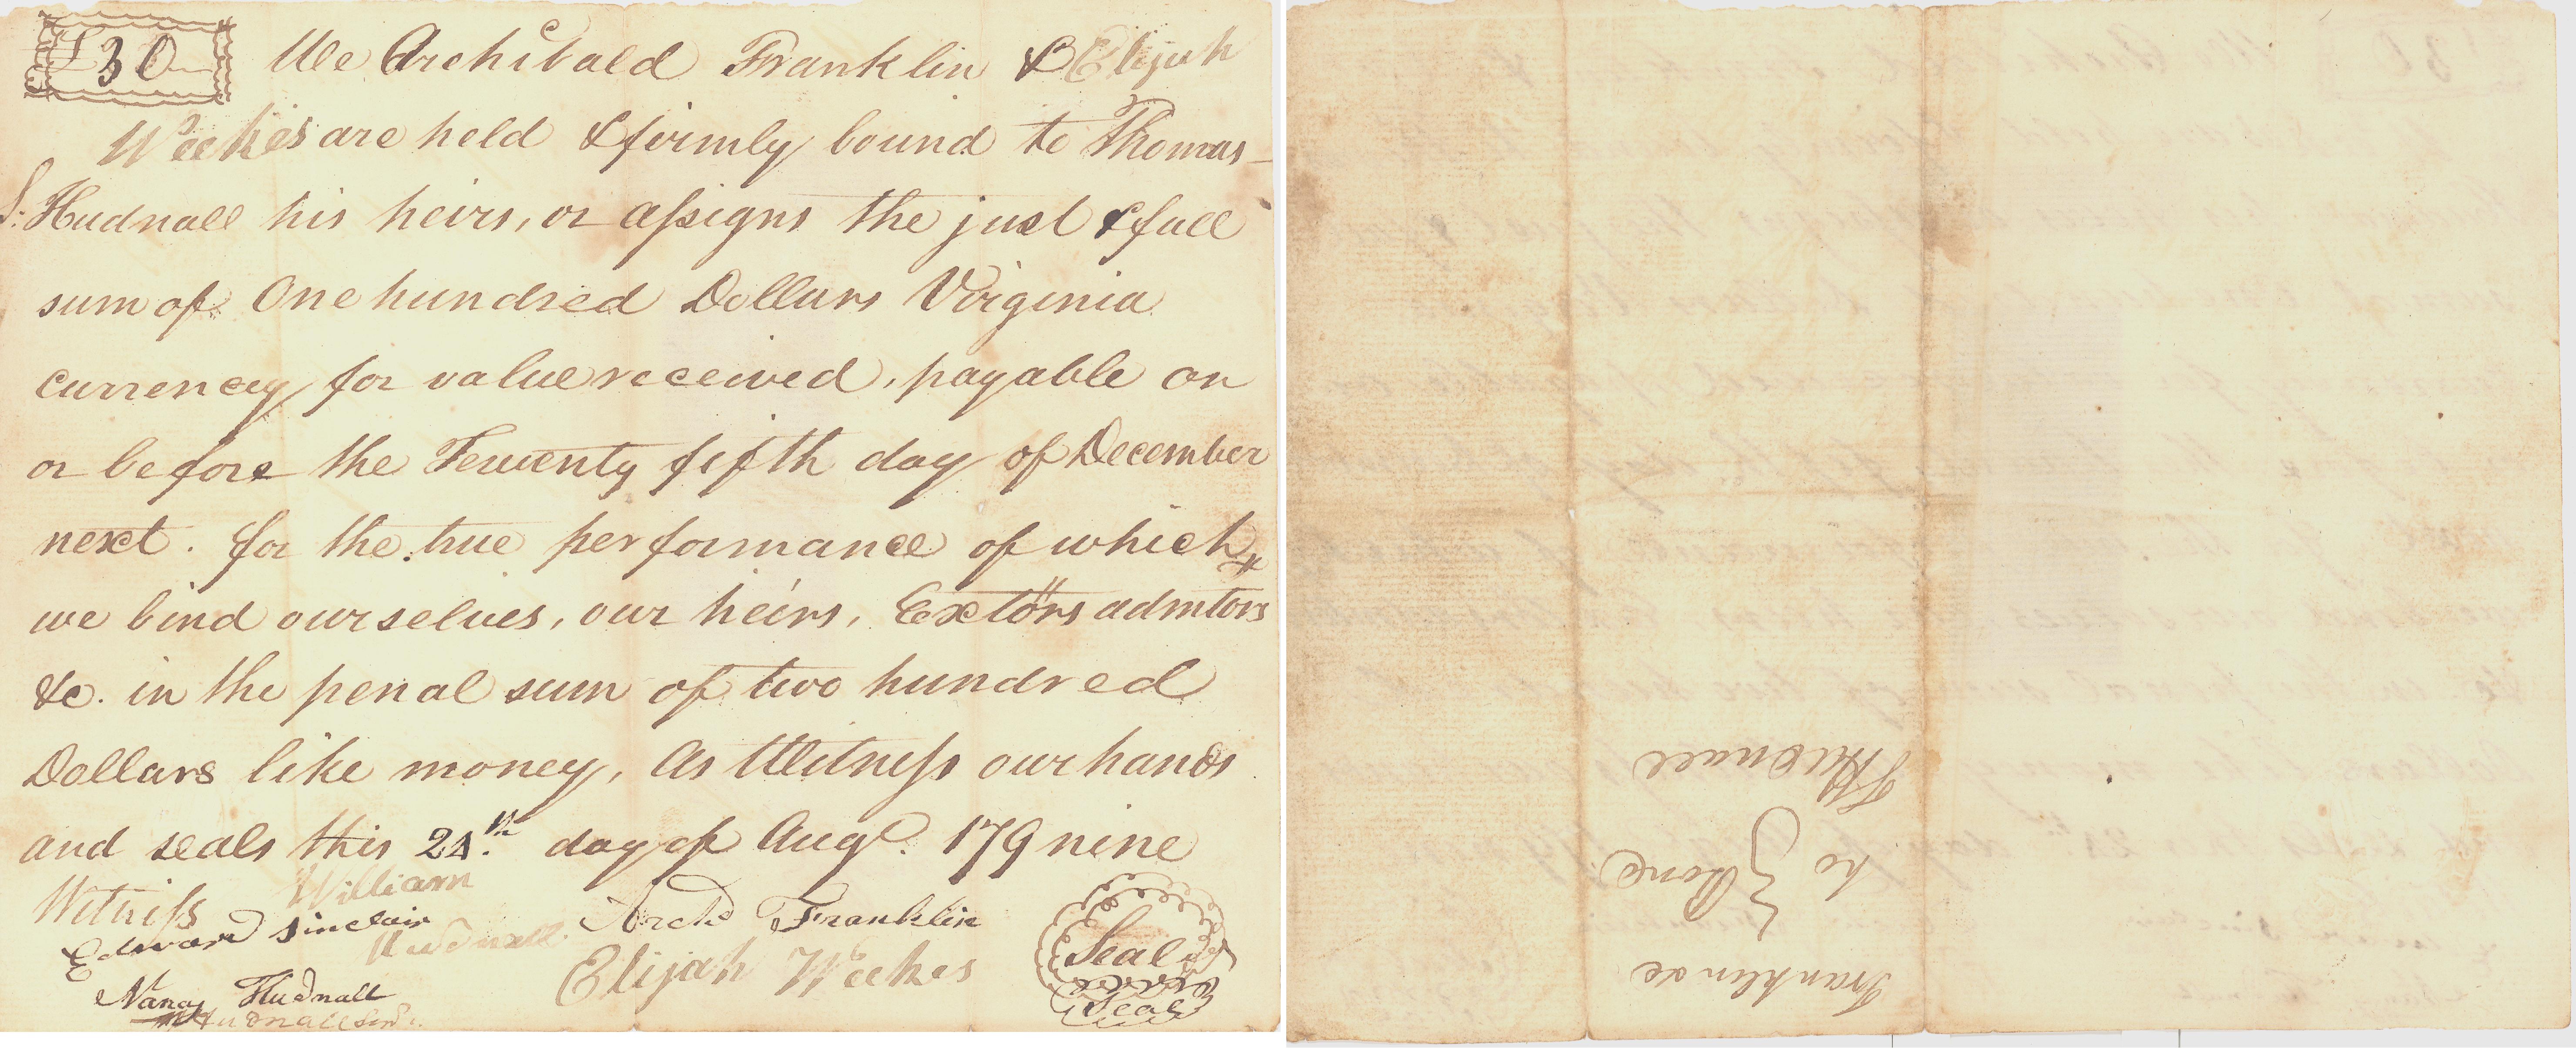 £30 We Archibald Franklin & Elijah
Weekes are held & firmly bound to Thomas
S. Hudnall his heirs, or assigns the just & full
sum of One hundred Dollars Virginia
currency for value received, payable on
or before the Tewenty fifth day of December
next. for the true performance of which
we bind ourselves, our heirs, Extors admtors
&c. in the penal sum of two hundred
Dollars like money, As Witness our hands
and seals this 24th day of Augt. 179 nine
Witness William
Edward Sinclair Hudnall
Archd Franklin
Elijah Weekes
Seal
Seal
Nancy Hudnall
Franklin &c
to Bond
THudnall